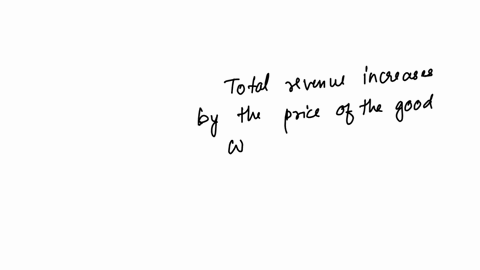 Total revenue increases
by the price of the good
w